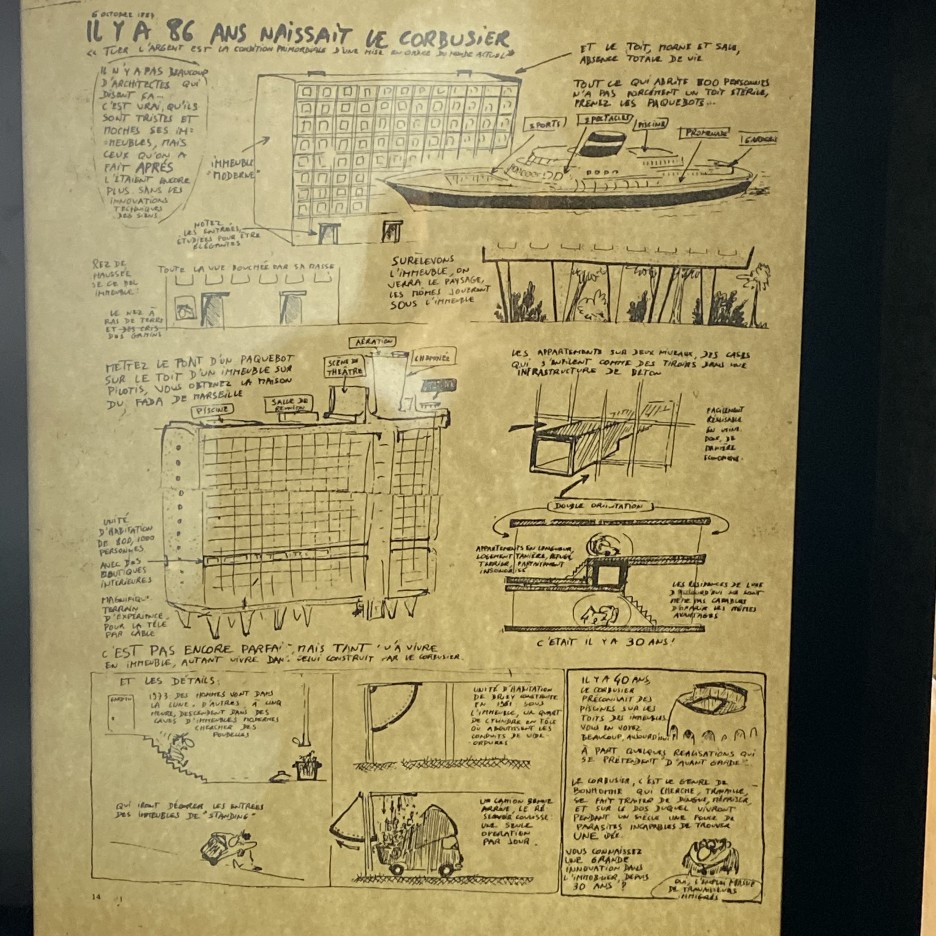 6 OCTOBRE 1887
IL Y A 86 ANS NAISSAIT LE CORBUSIER
« TUER L'ARGENT EST LA CONDITION PRIMORDIALE D'UNE MISE EN ORDRE DU MONDE ACTUEL »
IL N'Y A PAS BEAUCOUP
D'ARCHITECTES QUI
DISENT ÇA -
C'EST VRAI, QU'ILS
SONT TRISTES ET
MOCHES SES IM-
MEUBLES, MAIS
CEUX QU'ON A
FAIT APRÈS
L'ÉTAIENT ENCORE
PLUS. SANS LES
INNOVATIONS
TECHNIQUES
DES SIENS.
IMMEUBLE
"MODERNE"
NOTEZ
LES ENTRÉES
ÉTUDIÉES POUR ÊTRE
ÉLÉGANTES
ET LE TOIT, MORNE ET SALE,
ABSENCE TOTALE DE VIE
TOUT CE QUI ABRITE 800 PERSONNES
N'A PAS FORCÉMENT UN TOIT STÉRILE,
PRENEZ LES PAQUEBOTS...
SPORTS
SPECTACLES
PISCINE
PROMENADE
REZ DE
CE BEL
IMMEUBLE:
TOUTE LA VUE BOUCHÉE PAR SA MASSE
LE NEZ À
RAS DE TERRE
ET DES CRIS
DES GAMINS
SURELEVONS
L'IMMEUBLE, ON
VERRA LE PAYSAGE,
LES MÔMES JOUERONT
SOUS L'IMMEUBLE
METTEZ LE PONT D'UN PAQUEBOT
SUR LE TOIT D'UN IMMEUBLE SUR
PILOTIS, VOUS OBTENEZ LA MAISON
DU FADA DE MARSEILLE
AÉRATION
SCÈNE DE
THÉÂTRE
CHEMINÉE
PISCINE
SALLE DE
RÉUNION
UNITÉ
D'HABITATION
DE 800, 1000
PERSONNES
AVEC DES
BOUTIQUES
INTÉRIEURES
MAGNIFIQUE
TERRAIN
D'EXPÉRIENCE
POUR LA TÉLÉ
PAR CÂBLE
LES APPARTEMENTS SUR DEUX NIVEAUX, DES CASES
QUI S'ENFILENT COMME DES TIROIRS DANS UNE
INFRASTRUCTURE DE BÉTON
FACILEMENT
RÉALISABLE
EN USINE
DONC, DE
MANIÈRE
ÉCONOMIQUE.
DOUBLE ORIENTATION
APPARTEMENTS EN LONGUEUR,
LOGEMENT TANIÈRE, REFUGE
TERRIER, PARFAITEMENT
INSONORISÉ
LES RÉSIDENCES DE LUXE
D'AUJOURD'HUI NE SONT
MÊME PAS CAPABLES
D'OFFRIR LES MÊMES
AVANTAGES
C'ÉTAIT IL Y A 30 ANS!
C'EST PAS ENCORE PARFAIT, MAIS TANT QU'À VIVRE
EN IMMEUBLE, AUTANT VIVRE DANS CELUI CONSTRUIT PAR LE CORBUSIER.
ET LES DÉTAILS:
1973 DES HOMMES VONT DANS
LA LUNE. D'AUTRES, À CINQ
HEURES, DESCENDENT DANS DES
CAVES D'IMMEUBLES MODERNES
CHERCHER DES
POUBELLES
QUI IRONT DÉCORER LES ENTRÉES
DES IMMEUBLES DE "STANDING"
UNITÉ D'HABITATION
DE BRIEY CONSTRUITE
EN 1961 SOUS
L'IMMEUBLE, UN QUART
DE CYLINDRE EN TÔLE
OÙ ABOUTISSENT LES
CONDUITS DE VIDE
ORDURES
UN CAMION BENNE
ARRIVE, LE RÉ
SERVOIR COULISSE:
UNE SEULE
OPÉRATION
PAR JOUR.
IL Y A 40 ANS,
LE CORBUSIER
PRÉCONISAIT DES
PISCINES SUR LES
TOITS DES IMMEUBLES
VOUS EN VOYEZ
BEAUCOUP, AUJOURD'HUI
À PART QUELQUES RÉALISATIONS QUI
SE PRÉTENDENT D'AVANT GARDE?
LE CORBUSIER, C'EST LE GENRE DE
BONHOMME QUI CHERCHE, TRAVAILLE,
SE FAIT TRAITER DE DINGUE, MÉPRISER,
ET SUR LE DOS DUQUEL VIVRONT
PENDANT UN SIÈCLE UNE FOULE DE
PARASITES INCAPABLES DE TROUVER
UNE IDÉE.
VOUS CONNAISSEZ
UNE GRANDE
INNOVATION DANS
L'IMMOBILIER, DEPUIS
30 ANS?
OUI, L'EMPLOI MASSIF
DE TRAVAILLEURS
IMMIGRÉS
14